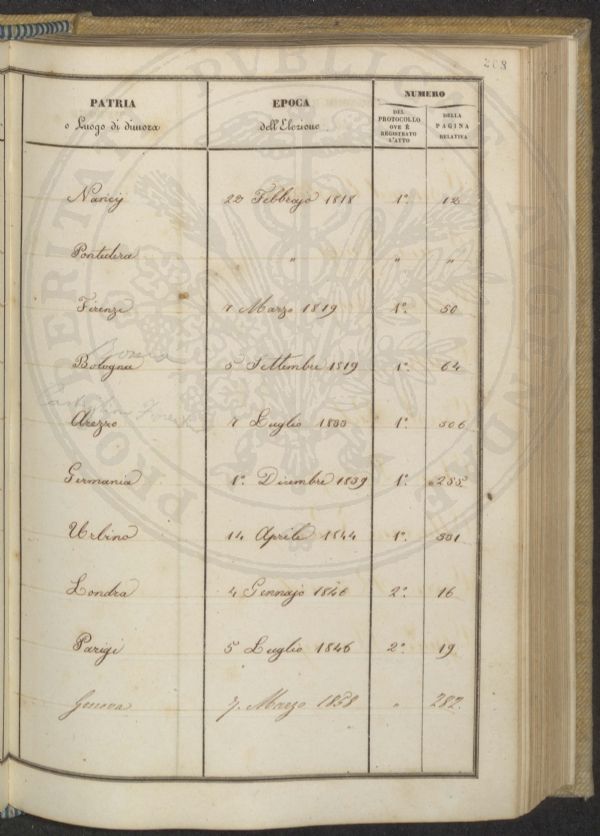 203
PATRIA
o Luogo di dimora
EPOCA
dell'Elezione
NUMERO
DEL PROTOCOLLO OVE È REGISTRATO L'ATTO
DELLA PAGINA RELATIVA
Nancÿ 22 Febbrajo 1818 1°. 12
Pontedera " " "
Firenze 7 Marzo 1819 1°. 50
Roma
Bologna 5 Settembre 1819 1°. 64
Arezzo 7 Luglio 1833 1°. 306
Germania 1°. Dicembre 1839 1°. 255
Urbino 14 Aprile 1844 1°. 301
Londra 4 Gennajo 1846 2°. 16
Parigi 5 Luglio 1846 2°. 19
Genova 7. Marzo 1858 " 282.
PROSPERITATI PUBLICAE AUGENDAE